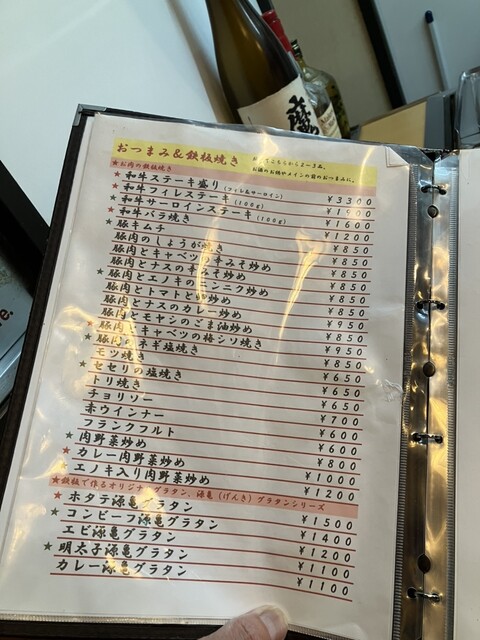 おつまみ&鉄板焼き
★お肉の鉄板焼き
★和牛ステーキ盛り(フィレ&サーロイン) ¥3300
★和牛フィレステーキ(100g) ¥1900
★和牛サーロインステーキ(100g) ¥1600
★和牛バラ焼き ¥1200
★豚キムチ ¥850
豚肉のしょうが焼き ¥850
豚肉とキャベツの辛みそ炒め ¥850
豚肉とナスの辛みそ炒め ¥850
★豚肉とエノキのニンニク炒め ¥850
豚肉とトマトの炒め ¥850
豚肉とナスのカレー炒め ¥850
豚肉とモヤシのごま油炒め ¥950
★豚肉とキャベツの梅シソ焼き ¥850
★豚肉のネギ塩焼き ¥950
モツ焼き ¥650
★セセリの塩焼き ¥650
トリ焼き ¥650
チョリソー ¥700
赤ウインナー ¥600
フランクフルト ¥600
★肉野菜炒め ¥800
★カレー肉野菜炒め ¥1000
★エノキ入り肉野菜炒め ¥1200
★鉄板で作るオリジナルグラタン、源亀(げんき)グラタンシリーズ
★ホタテ源亀グラタン ¥1500
★コンビーフ源亀グラタン ¥1400
エビ源亀グラタン ¥1200
★明太子源亀グラタン ¥1100
カレー源亀グラタン ¥1100